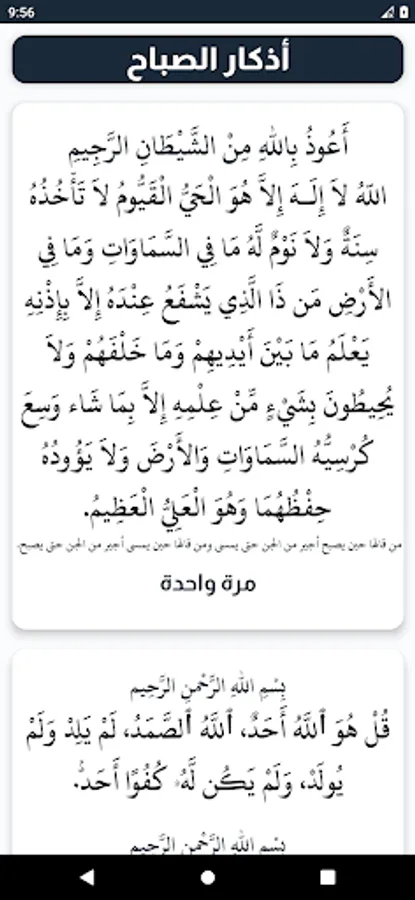 9:56
أذكار الصباح
أَعُوذُ بِاللهِ مِنْ الشَّيْطَانِ الرَّجِيمِ
اللّهُ لاَ إِلَـهَ إِلاَّ هُوَ الْحَيُّ الْقَيُّومُ لاَ تَأْخُذُهُ
سِنَةٌ وَلاَ نَوْمٌ لَّهُ مَا فِي السَّمَاوَاتِ وَمَا فِي
الأَرْضِ مَن ذَا الَّذِي يَشْفَعُ عِنْدَهُ إِلاَّ بِإِذْنِهِ
يَعْلَمُ مَا بَيْنَ أَيْدِيهِمْ وَمَا خَلْفَهُمْ وَلاَ
يُحِيطُونَ بِشَيْءٍ مِّنْ عِلْمِهِ إِلاَّ بِمَا شَاء وَسِعَ
كُرْسِيُّهُ السَّمَاوَاتِ وَالأَرْضَ وَلاَ يَؤُودُهُ
حِفْظُهُمَا وَهُوَ الْعَلِيُّ الْعَظِيمُ.
من قالها حين يصبح أجير من الجن حتى يمسى ومن قالها حين يمسى أجير من الجن حتى يصبح.
مرة واحدة
بِسْمِ اللهِ الرَّحْمنِ الرَّحِيم
قُلْ هُوَ ٱللَّهُ أَحَدٌ، ٱللَّهُ ٱلصَّمَدُ، لَمْ يَلِدْ وَلَمْ
يُولَدْ، وَلَمْ يَكُن لَّهُۥ كُفُوًا أَحَدٌۢ.
بِسْمِ اللهِ الرَّحْمنِ الرَّحِيم